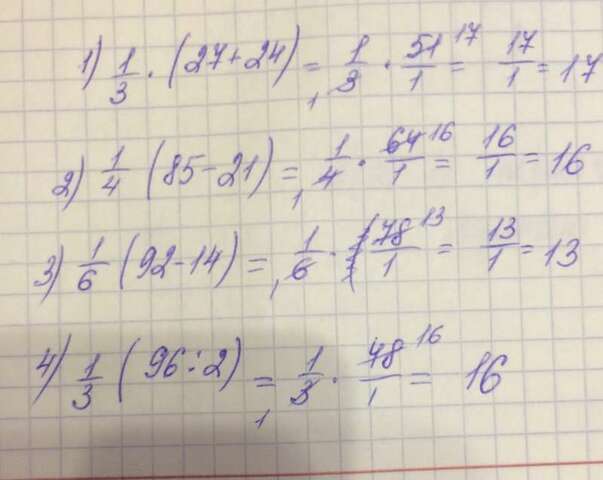 1) 1/3 · (27+24) = 1/3 1 · 51/1 17 = 17/1 = 17
2) 1/4 (85-21) = 1/4 1 · 64/1 16 = 16/1 = 16
3) 1/6 (92-14) = 1/6 1 · 78/1 13 = 13/1 = 13
4) 1/3 (96:2) = 1/3 1 · 48/1 16 = 16